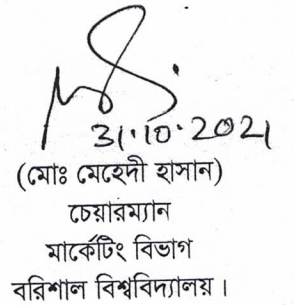 31.10.2021
(মোঃ মেহেদী হাসান)
চেয়ারম্যান
মার্কেটিং বিভাগ
বরিশাল বিশ্ববিদ্যালয়।